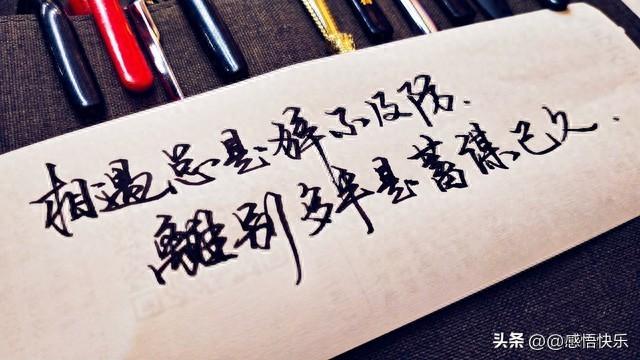 相遇总是猝不及防.
離别多半是蓄谋已久.
头条 @@感悟快乐